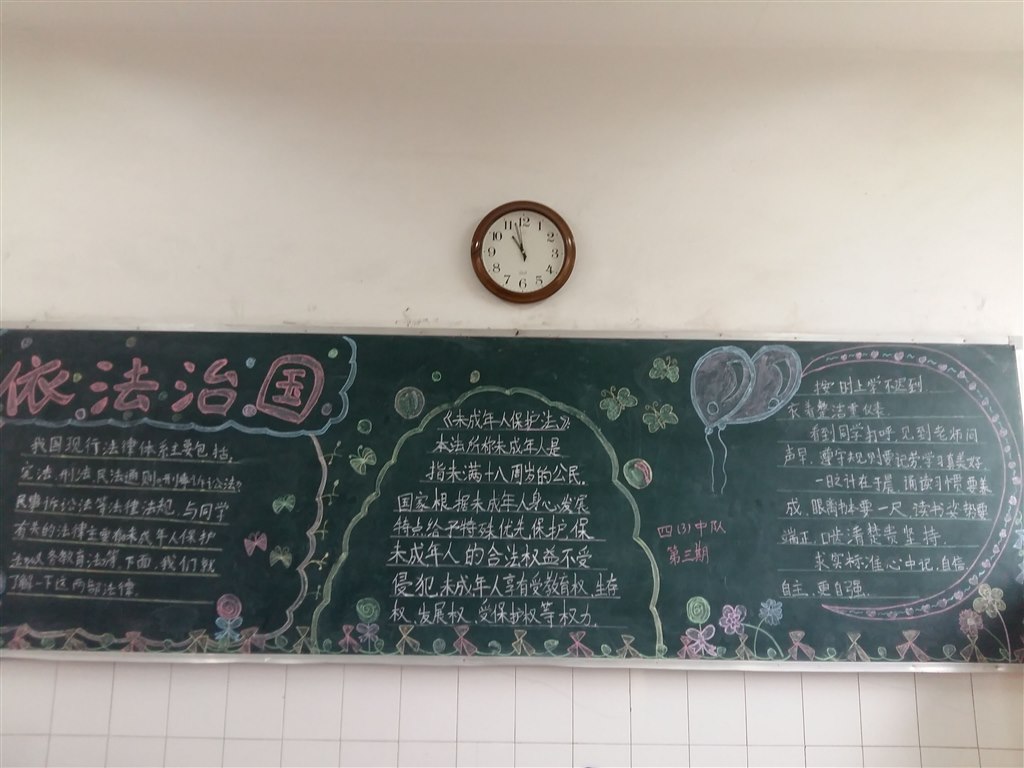 依法治国
我国现行法律体系主要包括,
宪法、刑法、民法通则、刑事诉讼法
民事诉讼法等法律法规,与同学
有关的法律主要有未成年人保护
法 义务教育法等,下面,我们就
了解一下这两部法律.
11 12 1
10 2
9 3
8 4
7 6
《未成年人保护法》:
本法所称未成年人是
指未满十八周岁的公民.
国家根据未成年人身心发展
特点给予特殊优先保护,保
未成年人的合法权益不受
侵犯.未成年人享有受教育权,生存
权、发展权、受保护权等权力.
四(3)中队
第三期
按时上学不迟到
衣着整洁重仪表
看到同学打呼,见到老师问
声早.遵守规则要记劳学习真美好.
一日之计在于晨,诵读习惯要养
成.眼离书本要一尺,读书姿势要
端正.口齿清楚贵坚持.
求实标准心中记,自信
自主,更自强.